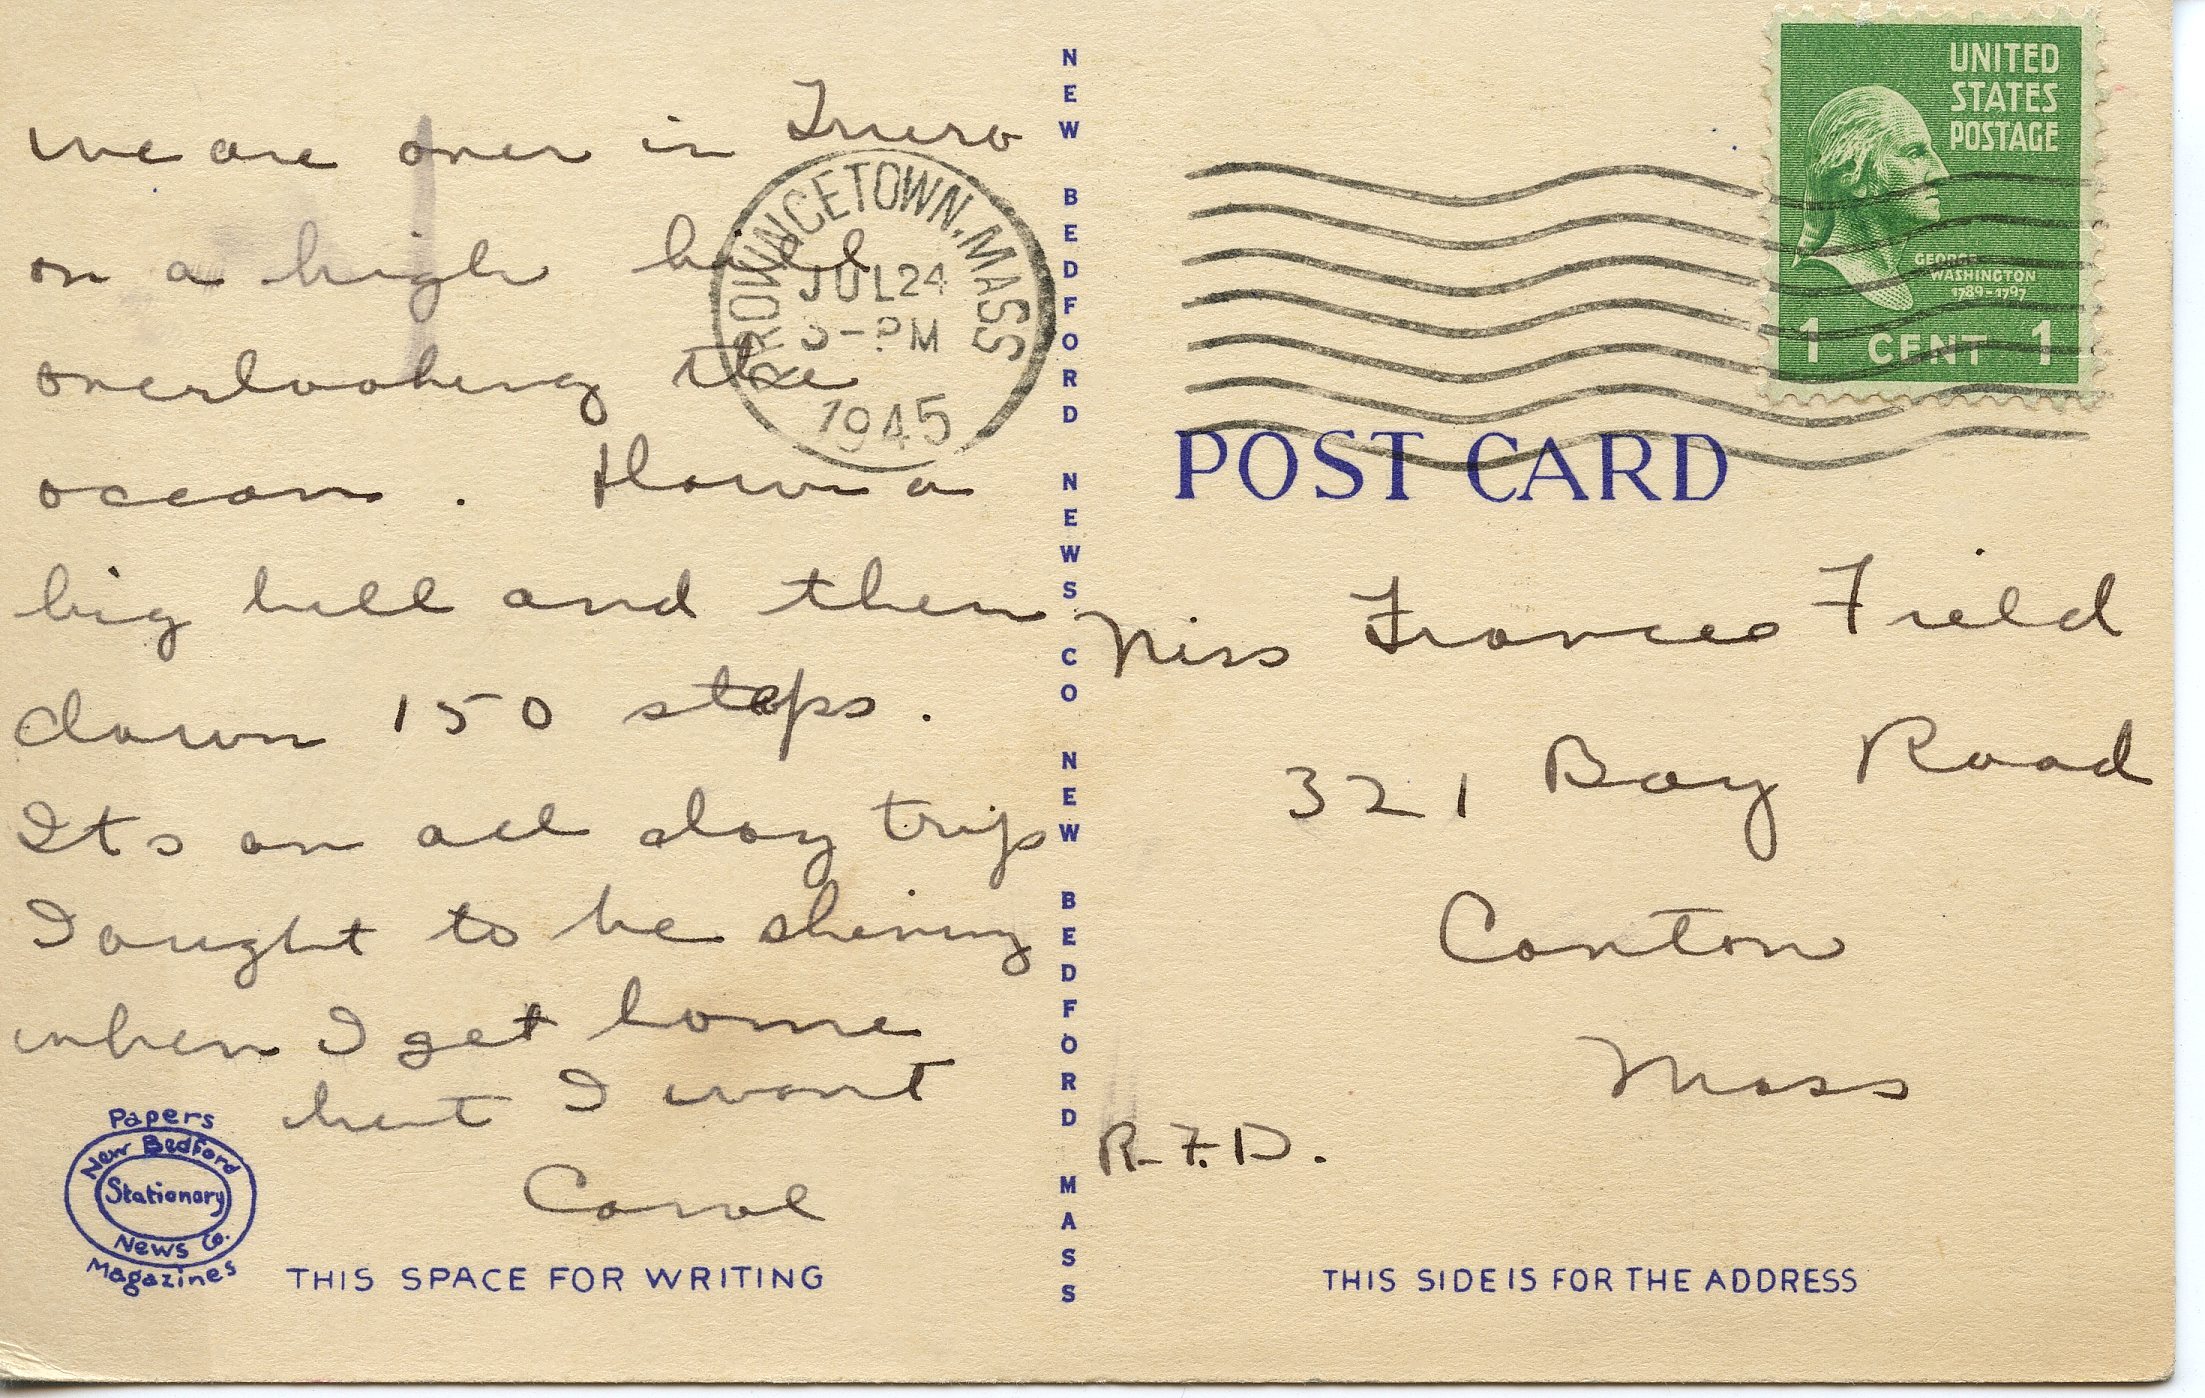 we are over in Truro
on a high hill
overlooking the
ocean. Down a
big hill and then
down 150 steps.
Its an all day trip
I ought to be shining
when I get home
but I wont
Carol
Papers
New Bedford
Stationary
News Co.
Magazines
THIS SPACE FOR WRITING
NEW BEDFORD NEWS CO NEW BEDFORD MASS
PROVINCETOWN, MASS
JUL 24
PM
1945
UNITED
STATES
POSTAGE
GEORGE
WASHINGTON
1789-1797
1 CENT 1
POST CARD
Miss Frances Field
321 Bay Road
Canton
Mass
R.F.D.
THIS SIDE IS FOR THE ADDRESS